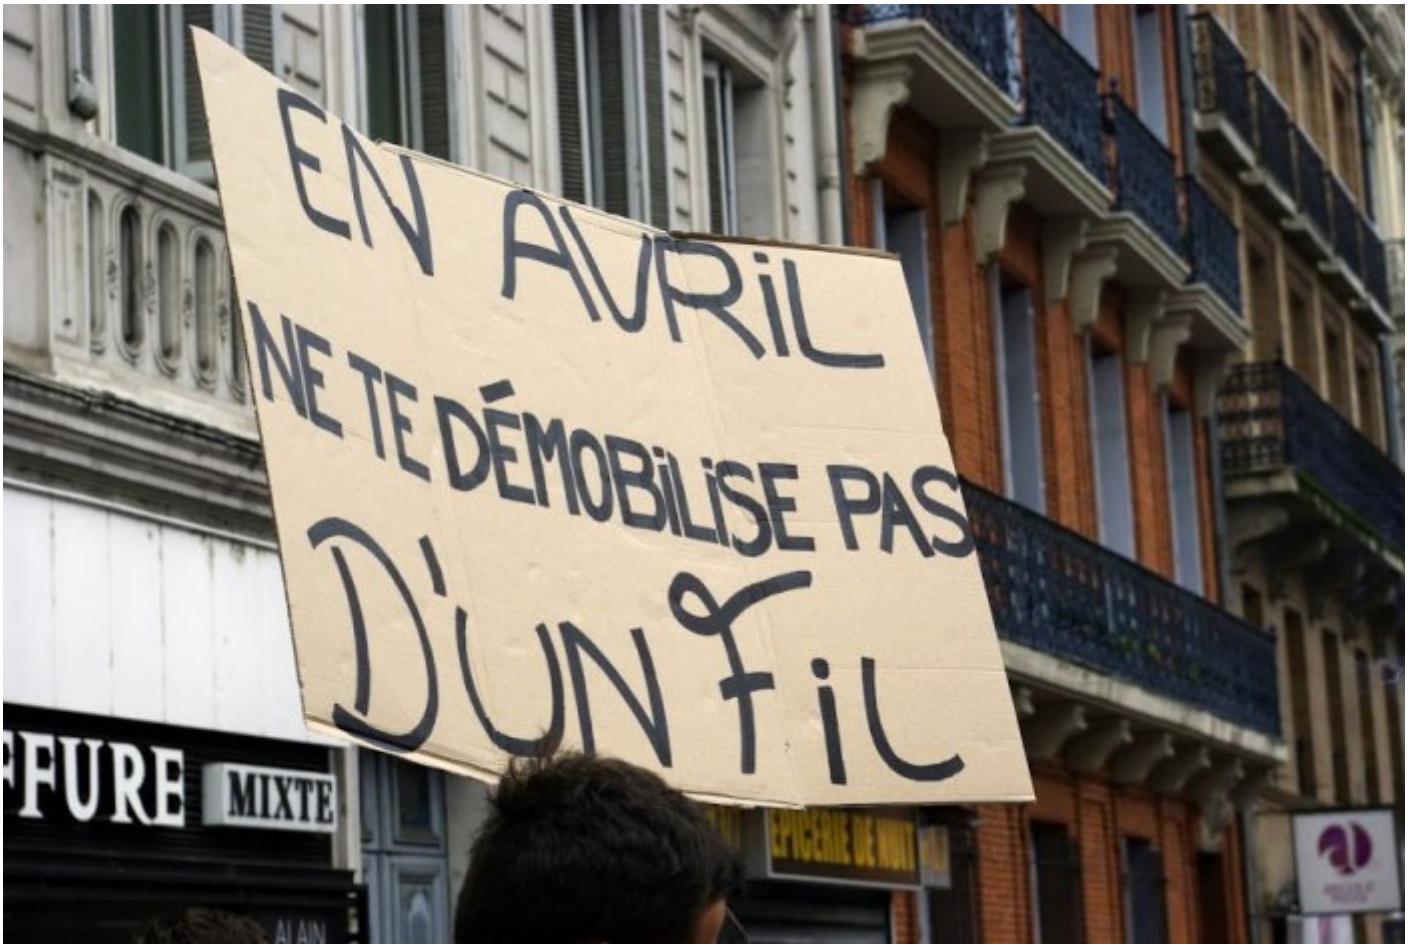 EN AVRiL
NE TE DÉMOBiLiSE PAS
D'UN FiL
FFURE
MIXTE
EPICERIE DE NUIT
ALAIN